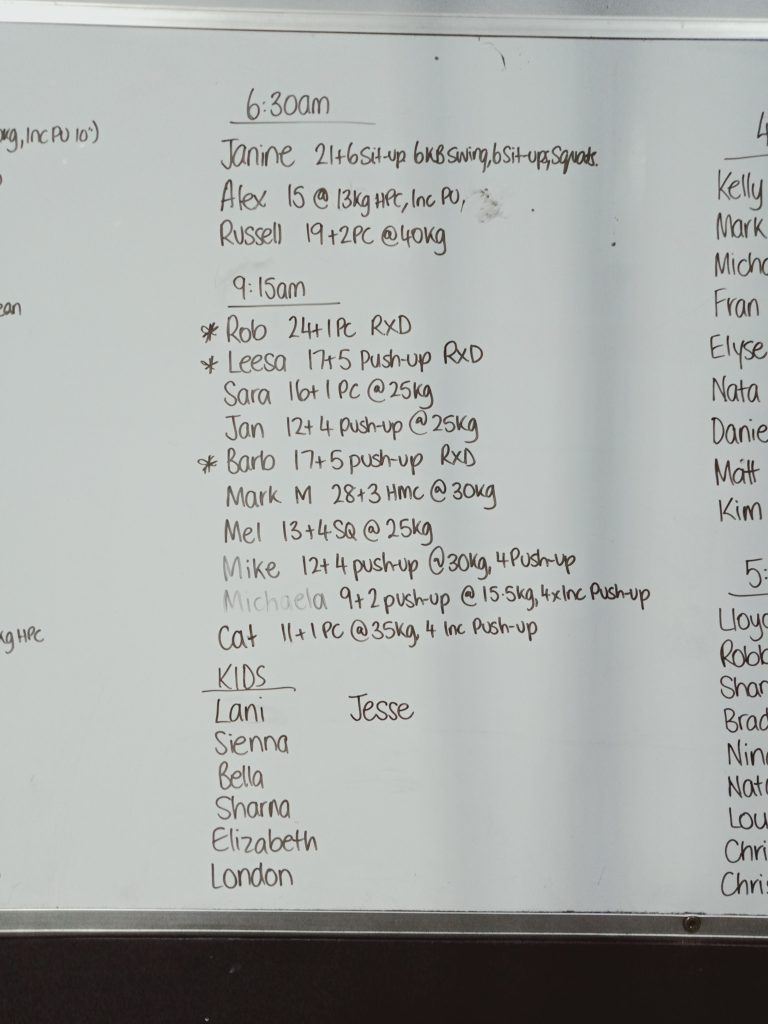 kg, Inc PU 10")
6:30am
Janine 21+6 Sit-up 6KB Swing, 6 Sit-ups, Squats.
Alex 15 @ 13kg HPC, Inc PU,
Russell 19+2PC @40kg
ean
9:15am
* Rob 24+1PC RXD
* Leesa 17+5 Push-up RXD
Sara 16+1 PC @25kg
Jan 12+4 push-up @25kg
* Barb 17+5 push-up RXD
Mark M 28+3 HMC @30kg
Mel 13+4 SQ @ 25kg
Mike 12+4 push-up @30kg, 4 Push-up
Michaela 9+2 push-up @ 15.5kg, 4xInc Push-up
Cat 11+1 PC @35kg, 4 Inc Push-up
kg HPC
KIDS
Lani Jesse
Sienna
Bella
Sharna
Elizabeth
London
4
Kelly
Mark
Micha
Fran
Elyse
Nata
Danie
Matt
Kim
5:
Lloyd
Robb
Shar
Brad
Nin
Nata
Lou
Chri
Chris